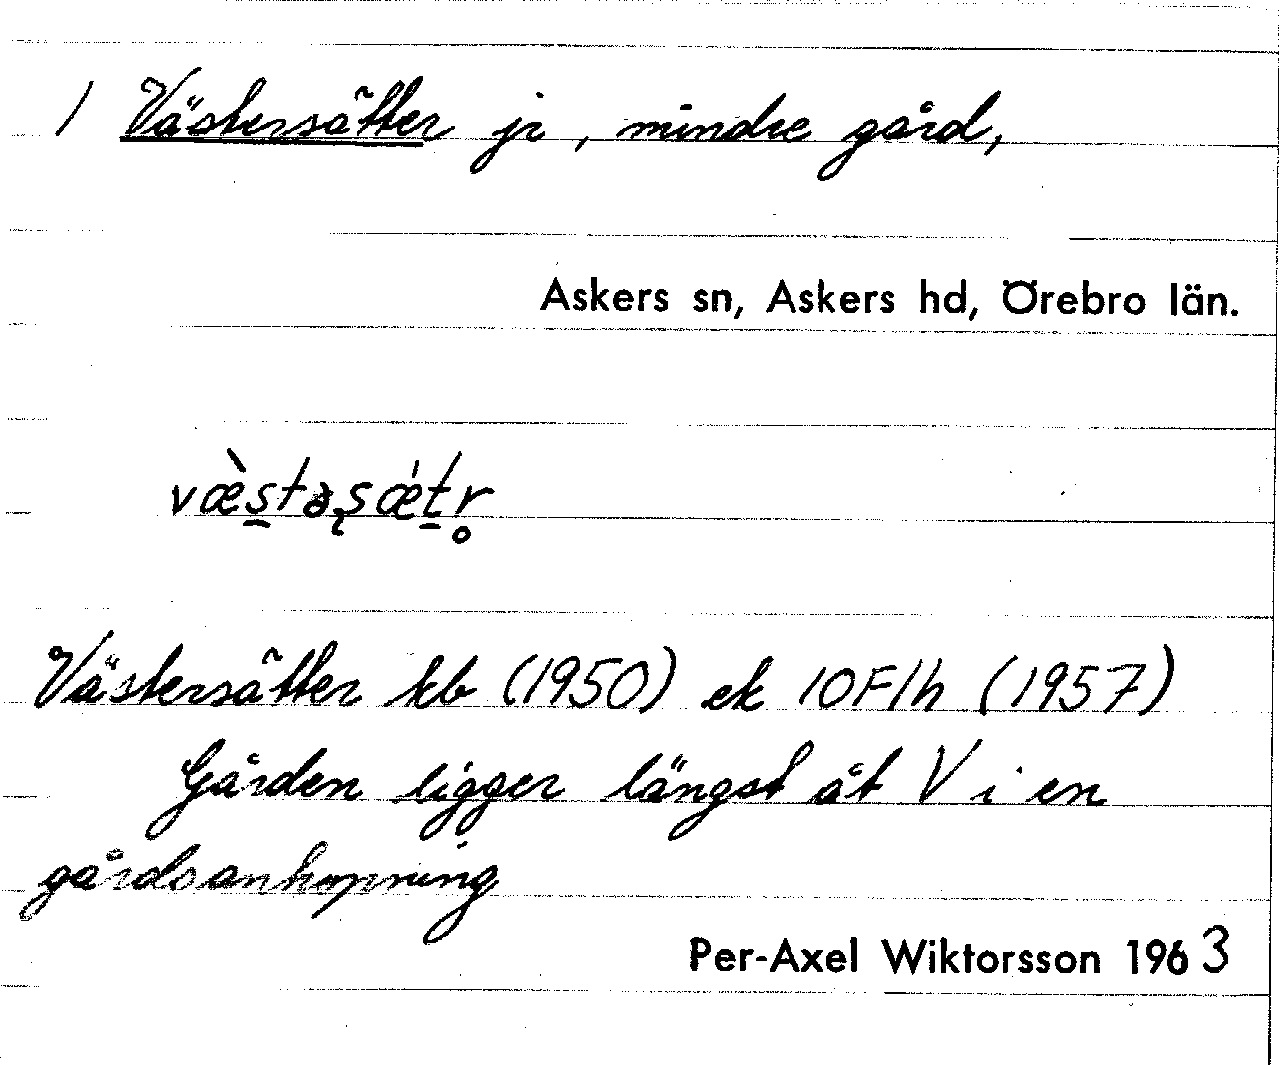 1 Västersätter jr, mindre gård,
Askers sn, Askers hd, Örebro län.
væ̀s̠təʂǽt̠r̥
Västersätter kb (1950) ek 10F1h (1957)
Gården ligger längst åt V i en
gårdsanhopning
Per-Axel Wiktorsson 1963